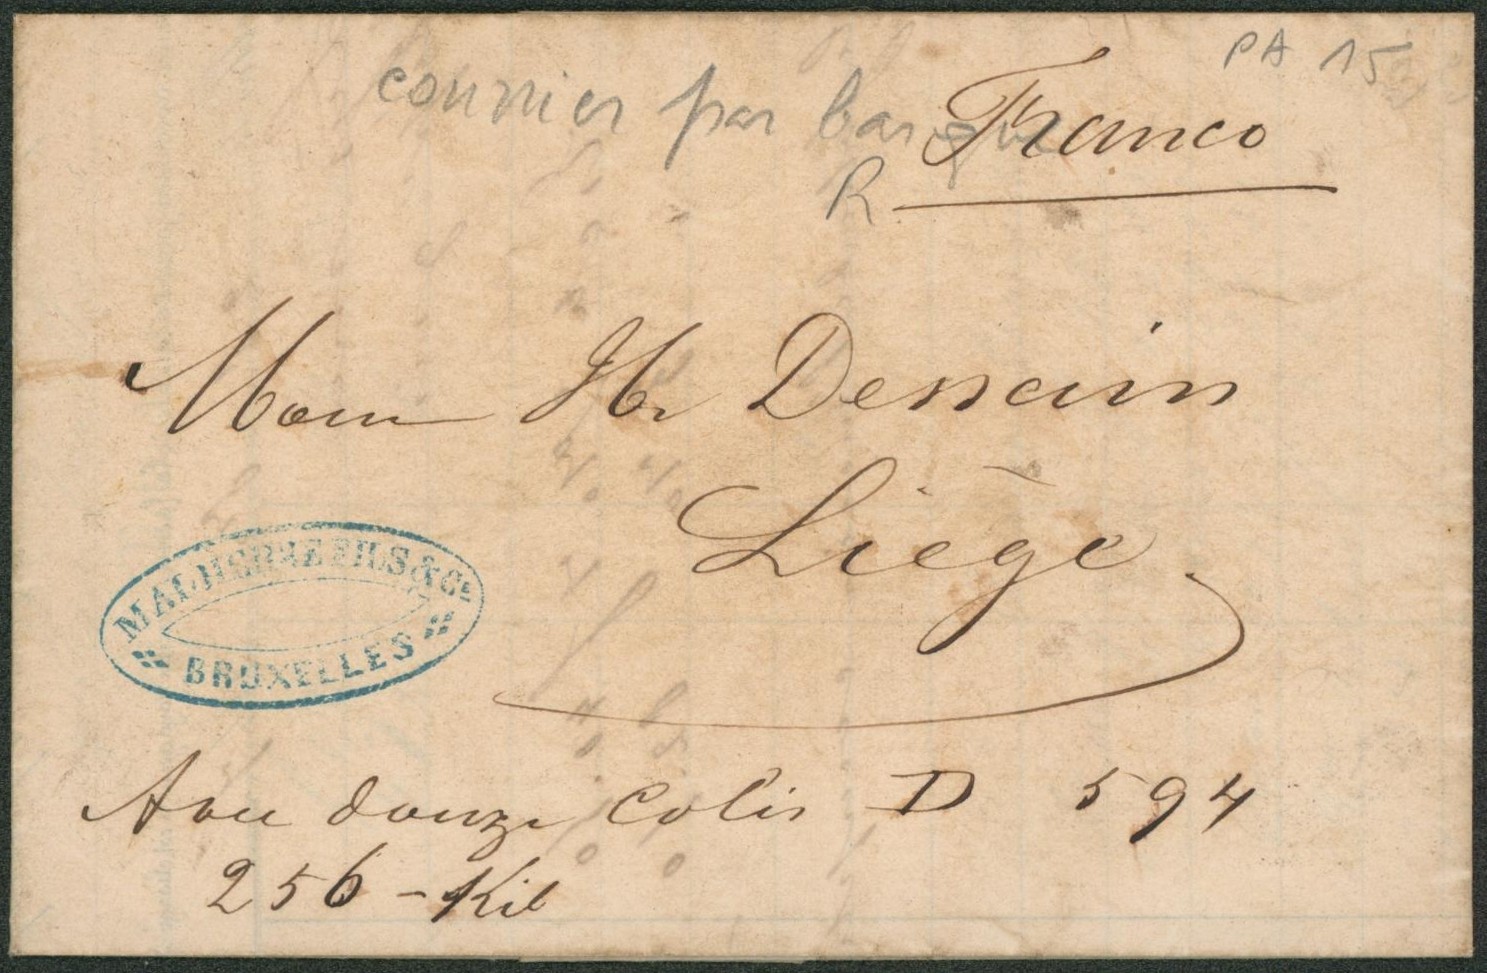 PA 15
courrier par barque
Franco
R
Mons Hr Dessain
Liège
MALHERBE FILS & Cº
BRUXELLES
Avec douze Colis D 594
256 - Kil